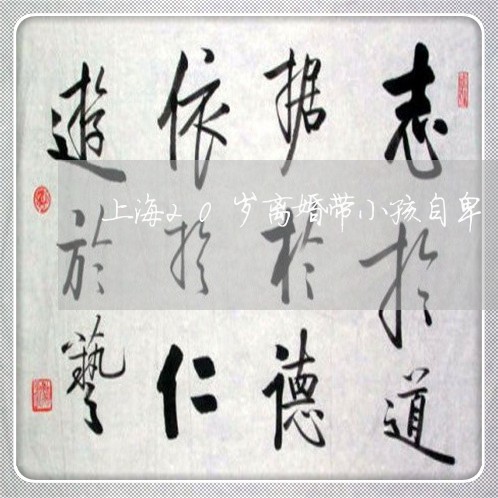 志於道
据於德
依於仁
遊於藝
上海20岁离婚带小孩自卑